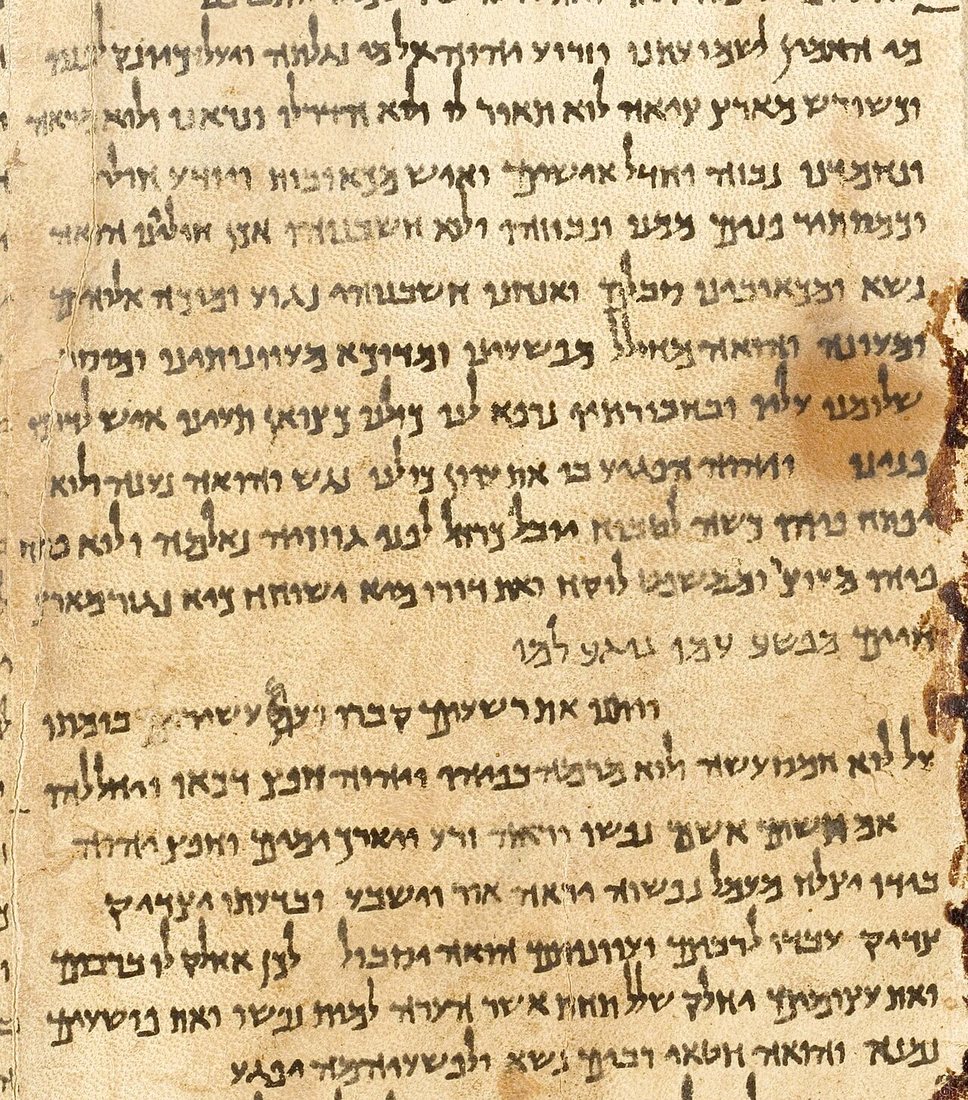 מי האמין לשמועתנו וזרוע יהוה אל מי נגלתה ויעל כיונק לפניו
וכשורש מארץ ציאה לוא תאור לו ולוא הדר לו ונראנו ולוא מראה
ונחמדנו נבזה וחדל אישים ואיש מכאובות ויודע חולי
וכמסתיר פנים ממנו ונבוזהו ולוא חשבנוהו אכן חוליינו הואה
נשא ומכאובינו סבלם ואנחנו חשבנוהו נגוע ומוכה אלוהים
ומעונה והואה מחולל מפשעינו ומדוכא מעוונותינו ומוסר
שלומנו עליו ובחבורתיו נרפא לנו כולנו כצואן תעינו איש לדרכו
פנינו ויהוה הפגיע בו את עוון כולנו נגש והואה נענה ולוא
יפתח פיהו כשה לטבוח יובל כרחל לפני גוזזיה נאלמה ולוא פתח
פיהו מעוצר וממשפט לוקח ואת דורו מיא ישוחח כיא נגזר מארץ
חיים מפשע עמו נוגע למו
ויתנו את רשעים קברו ועם עשירים בומתו
על לוא חמס עשה ולוא מרמה בפיהו ויהוה חפץ דכאו ויחללהו
אם תשים אשם נפשו יראה זרע ויאריך ימים וחפץ יהוה
בידו יצלח מעמל נפשוה יראה אור וישבע ובדעתו יצדיק
צדיק עבדו לרבים ועוונותם הואה יסבול לכן אחלק לו ברבים
ואת עצומים יחלק שלל תחת אשר הערה למות נפשו ואת פושעים
נמנא והואה חטאי רבים נשא ולפשעיהמה יפגע